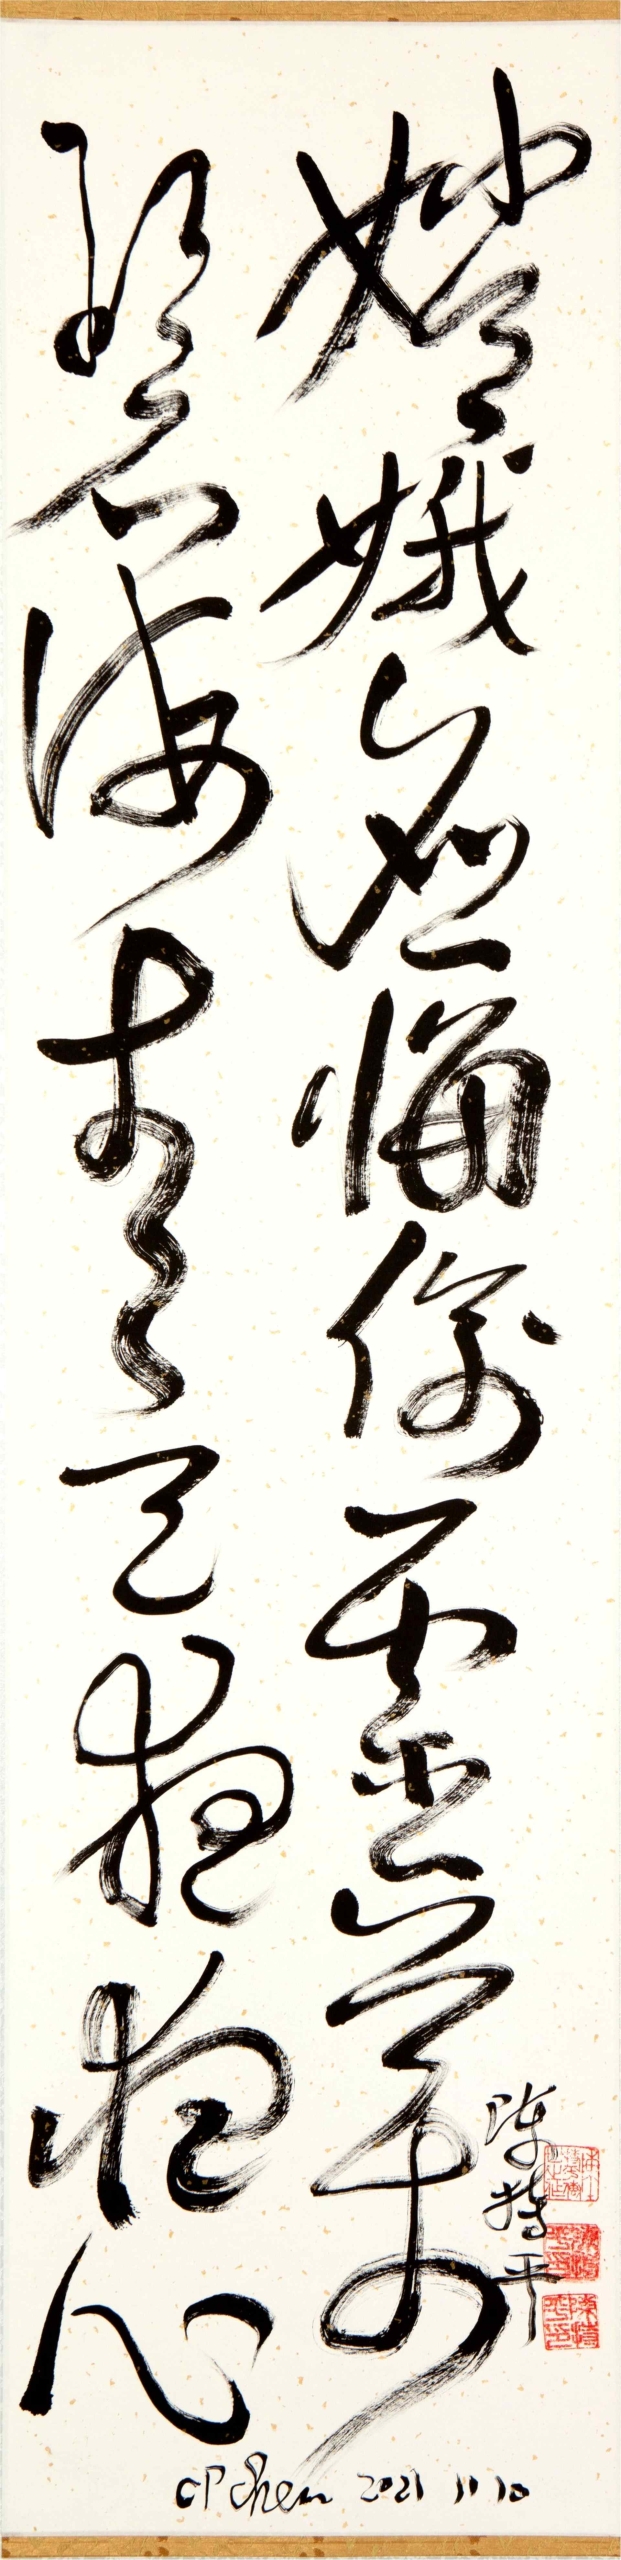 嫦娥應悔偷靈藥
碧海青天夜夜心
陳持平
CP Chen 2021 11 10